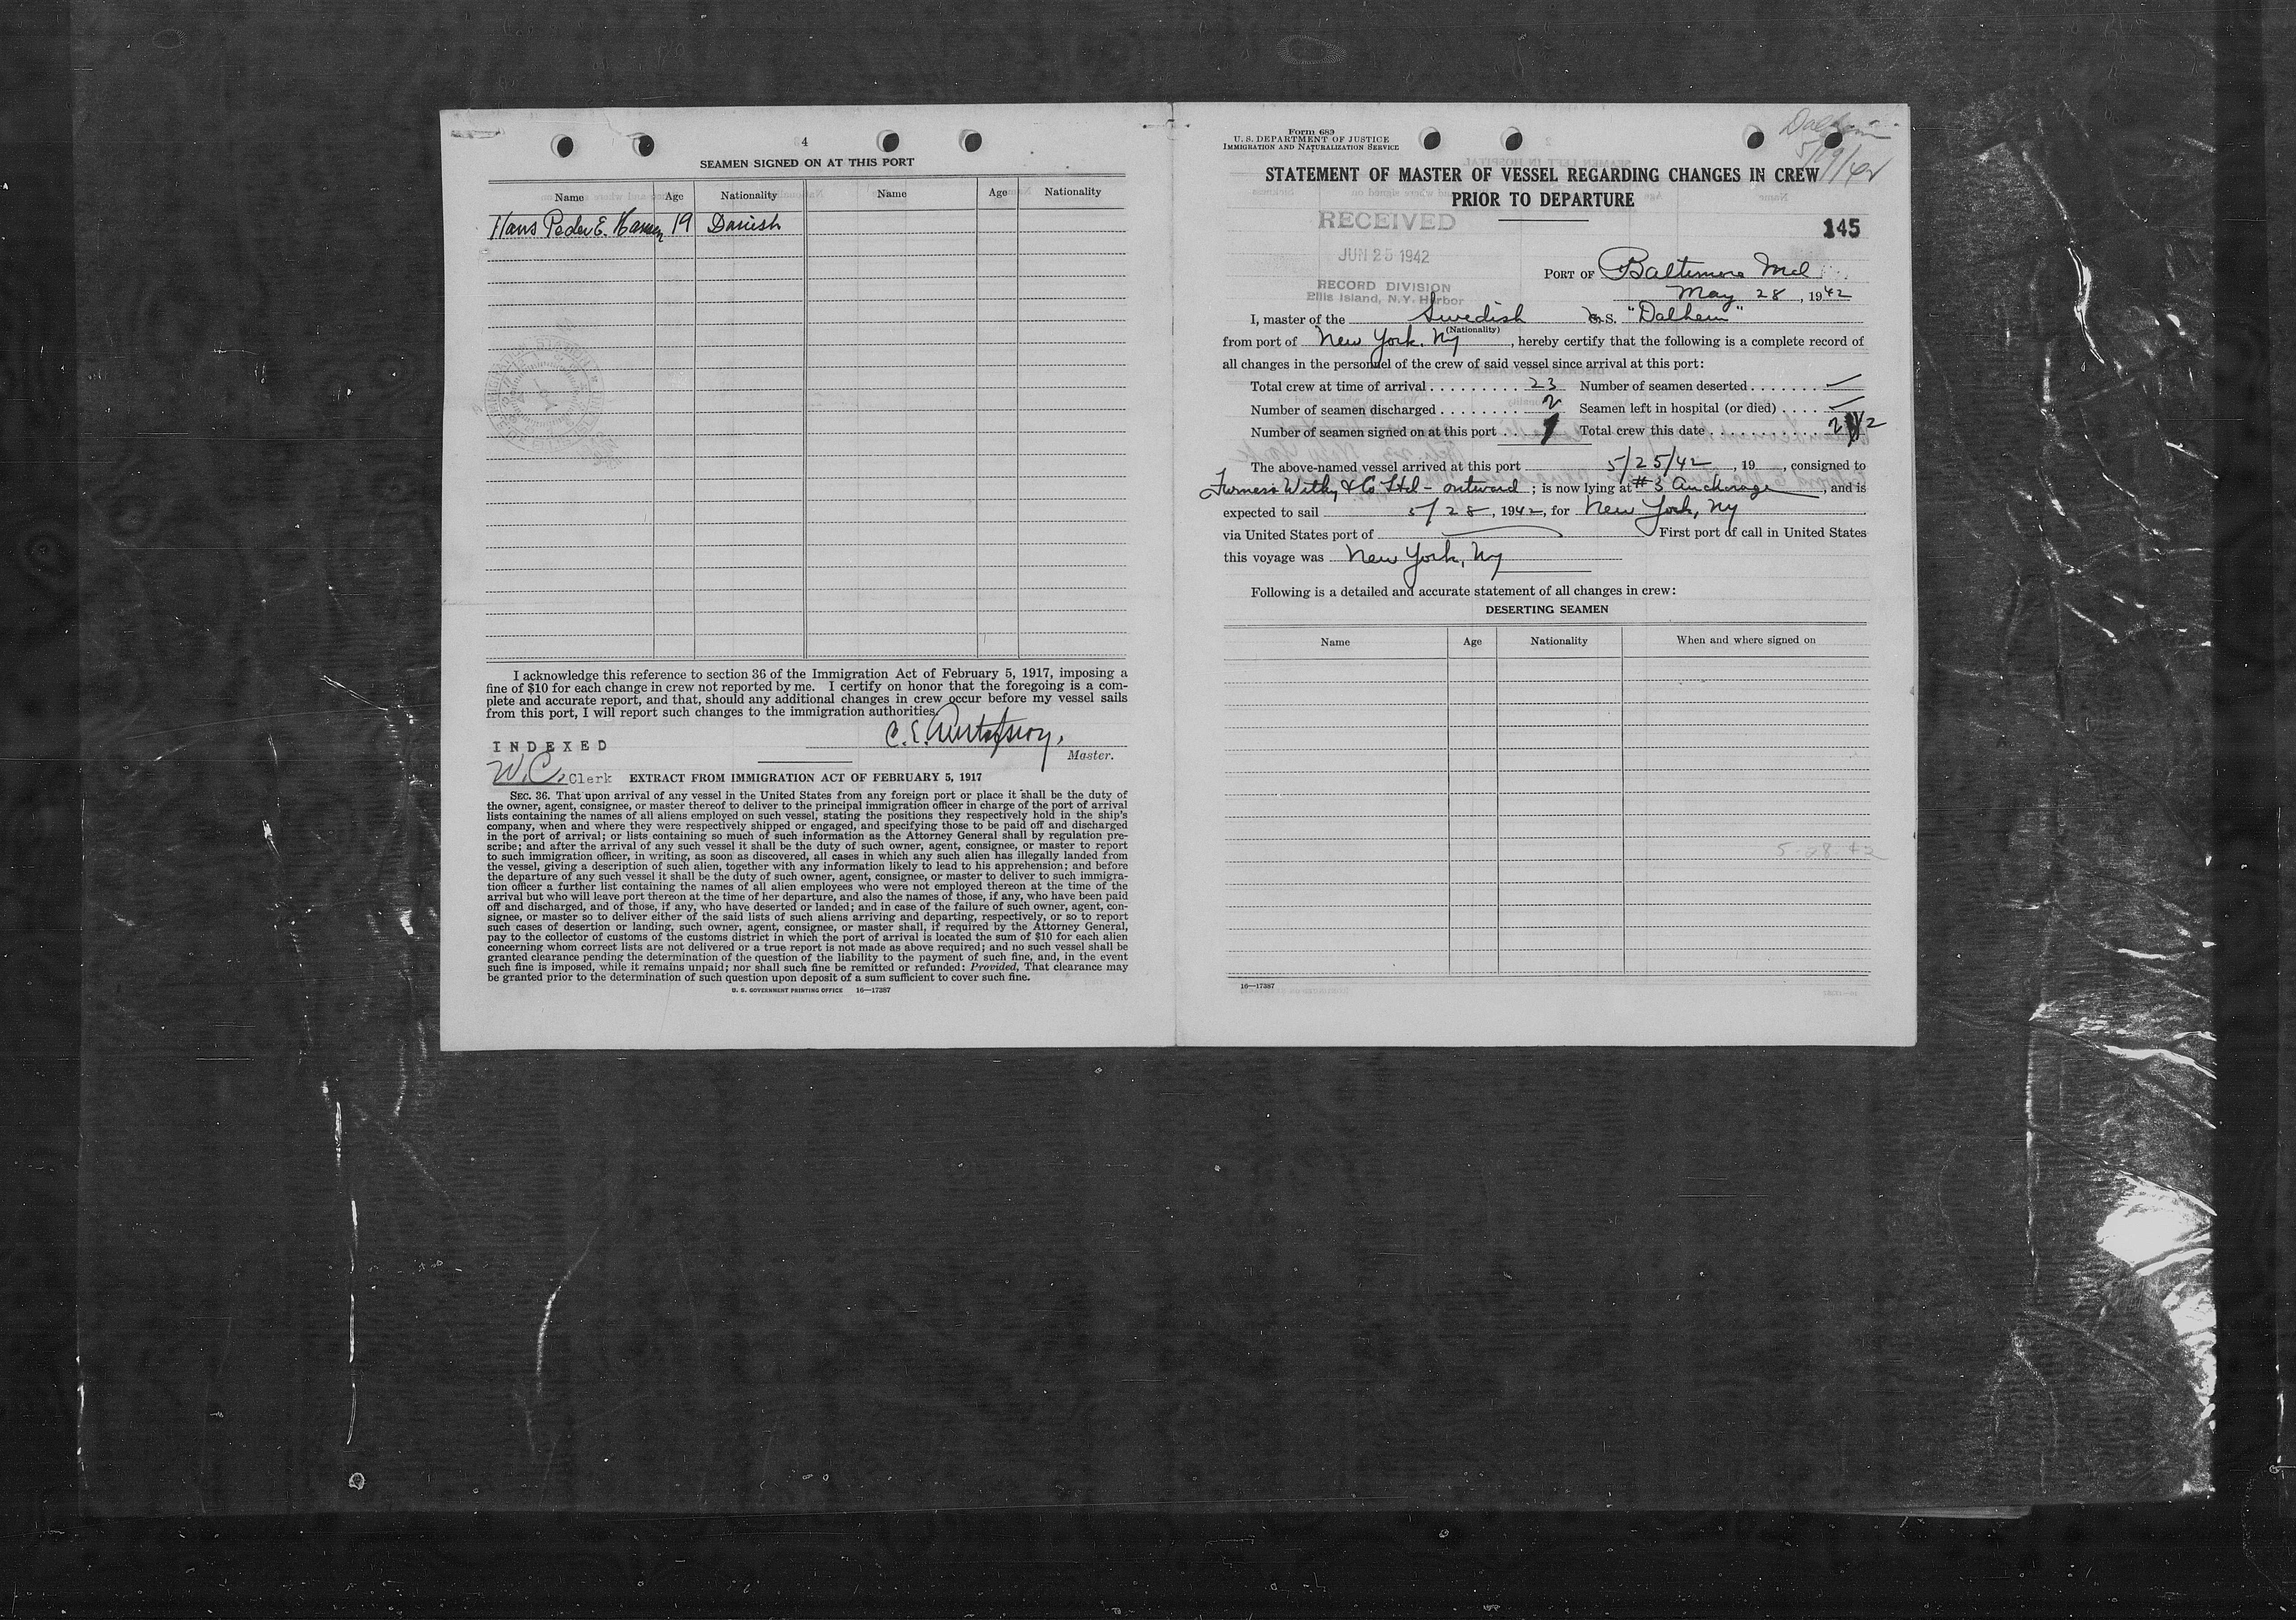 4
SEAMEN SIGNED ON AT THIS PORT
Name Age Nationality Name Age Nationality
Hans Peder E. Hansen 19 Danish
I acknowledge this reference to section 36 of the Immigration Act of February 5, 1917, imposing a
fine of $10 for each change in crew not reported by me. I certify on honor that the foregoing is a com-
plete and accurate report, and that, should any additional changes in crew occur before my vessel sails
from this port, I will report such changes to the immigration authorities.
C. E. Gustafsson,
INDEXED
Master.
W.C. Clerk
EXTRACT FROM IMMIGRATION ACT OF FEBRUARY 5, 1917
SEC. 36. That upon arrival of any vessel in the United States from any foreign port or place it shall be the duty of
the owner, agent, consignee, or master thereof to deliver to the principal immigration officer in charge of the port of arrival
lists containing the names of all aliens employed on such vessel, stating the positions they respectively hold in the ship's
company, when and where they were respectively shipped or engaged, and specifying those to be paid off and discharged
in the port of arrival; or lists containing so much of such information as the Attorney General shall by regulation pre-
scribe; and after the arrival of any such vessel it shall be the duty of such owner, agent, consignee, or master to report
to such immigration officer, in writing, as soon as discovered, all cases in which any such alien has illegally landed from
the vessel, giving a description of such alien, together with any information likely to lead to his apprehension; and before
the departure of any such vessel it shall be the duty of such owner, agent, consignee, or master to deliver to such immigra-
tion officer a further list containing the names of all alien employees who were not employed thereon at the time of the
arrival but who will leave port thereon at the time of her departure, and also the names of those, if any, who have been paid
off and discharged, and of those, if any, who have deserted or landed; and in case of the failure of such owner, agent, con-
signee, or master so to deliver either of the said lists of such aliens arriving and departing, respectively, or so to report
such cases of desertion or landing, such owner, agent, consignee, or master shall, if required by the Attorney General,
pay to the collector of customs of the customs district in which the port of arrival is located the sum of $10 for each alien
concerning whom correct lists are not delivered or a true report is not made as above required; and no such vessel shall be
granted clearance pending the determination of the question of the liability to the payment of such fine, and, in the event
such fine is imposed, while it remains unpaid; nor shall such fine be remitted or refunded: Provided, That clearance may
be granted prior to the determination of such question upon deposit of a sum sufficient to cover such fine.
U. S. GOVERNMENT PRINTING OFFICE 16—17387
Form 689
U. S. DEPARTMENT OF JUSTICE
IMMIGRATION AND NATURALIZATION SERVICE
Dalhem
5/19/42
STATEMENT OF MASTER OF VESSEL REGARDING CHANGES IN CREW
PRIOR TO DEPARTURE
RECEIVED
145
JUN 25 1942
PORT OF Baltimore Md
RECORD DIVISION
Ellis Island, N.Y. Harbor
May 28, 1942
I, master of the Swedish S. "Dalhem"
(Nationality)
from port of New York, Ny, hereby certify that the following is a complete record of
all changes in the personnel of the crew of said vessel since arrival at this port:
Total crew at time of arrival . . . . . . . . . 23 Number of seamen deserted . . . . . . . —
Number of seamen discharged . . . . . . . . 2 Seamen left in hospital (or died) . . . . . —
Number of seamen signed on at this port . . . . 1 Total crew this date . . . . . . . . . . . . 22
The above-named vessel arrived at this port 5/25/42, 19 , consigned to
Furness Withy & Co Ltd - outward ; is now lying at #3 Anchorage, and is
expected to sail 5/28, 1942, for New York, Ny
via United States port of — First port of call in United States
this voyage was New York, Ny
Following is a detailed and accurate statement of all changes in crew:
DESERTING SEAMEN
Name Age Nationality When and where signed on
5-28-42
16—17387